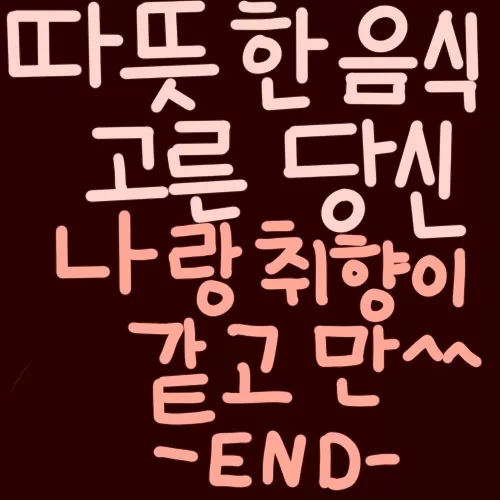 따뜻한 음식
고른 당신
나랑 취향이
같고만^^
-END-